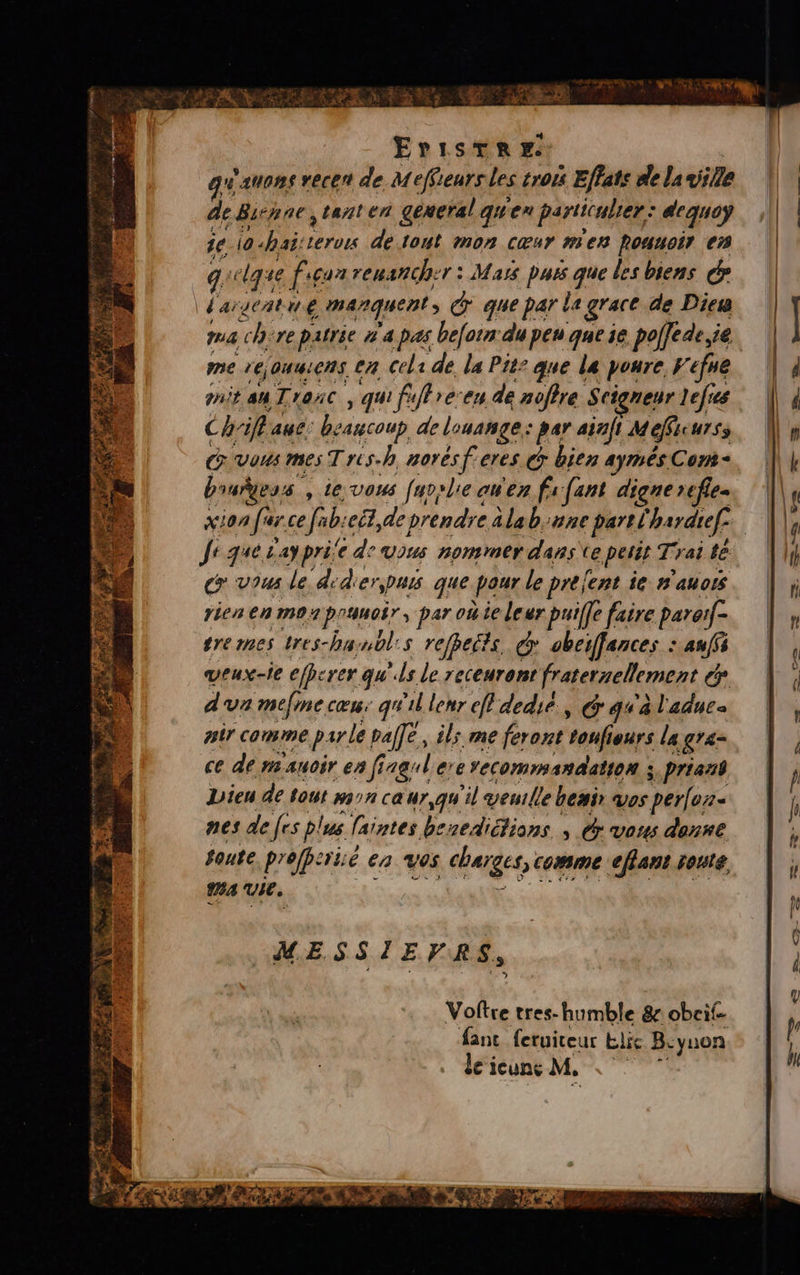 EPISTRE.
qu'auons receu de Meſsieurs les trois Eſtats de la ville
de Bienne, tant en general qu'en particulier: dequoy
ie souhaitterois de tout mon cœur m'en pouuoir en
quelque façon reuancher: Mais puis que les biens &
l'argent me manquent, & que par la grace de Dieu
ma chere patrie n'a pas beſoin du peu que ie poſſede, ie
me reſouuiens en cela de la Pite que la poure Vefue
mit au Tronc, qui fuſt receu de noſtre Seigneur Ieſus
Chriſt auec beaucoup de louange: par ainſi Meſsieurs,
& vous mes Tres-honorés freres & bien aymés Com-
bourgeois, ie vous ſupplie qu'en faiſant digne refle-
xion ſur ce ſubiect, de prendre à la bonne part l'hardieſ-
ſe que i'ay priſe de vous nommer dans ce petit Traité
& vous le dedier, puis que pour le preſent ie n'auois
rien en mon pouuoir, par où ie leur puiſſe faire paroiſ-
tre mes tres-humbles reſpects, & obeiſſances: auſsi
veux-ie eſperer qu'ils le receuront fraternellement &
d'vn meſme cœur qu'il leur eſt dedié, & qu'à l'adue-
nir comme par le paſſé, ils me feront touſiours la gra-
ce de m'auoir en ſinguliere recommandation; priant
Dieu de tout mon cœur, qu'il vueille benir vos perſon-
nes de ſes plus ſaintes benedictions, & vous donne
toute proſperité en vos charges, comme eſtant toute
ma vie.
MESSIEVRS,
Voſtre tres-humble & obeiſ-
ſant ſeruiteur Elie Beynon
le ieune M.